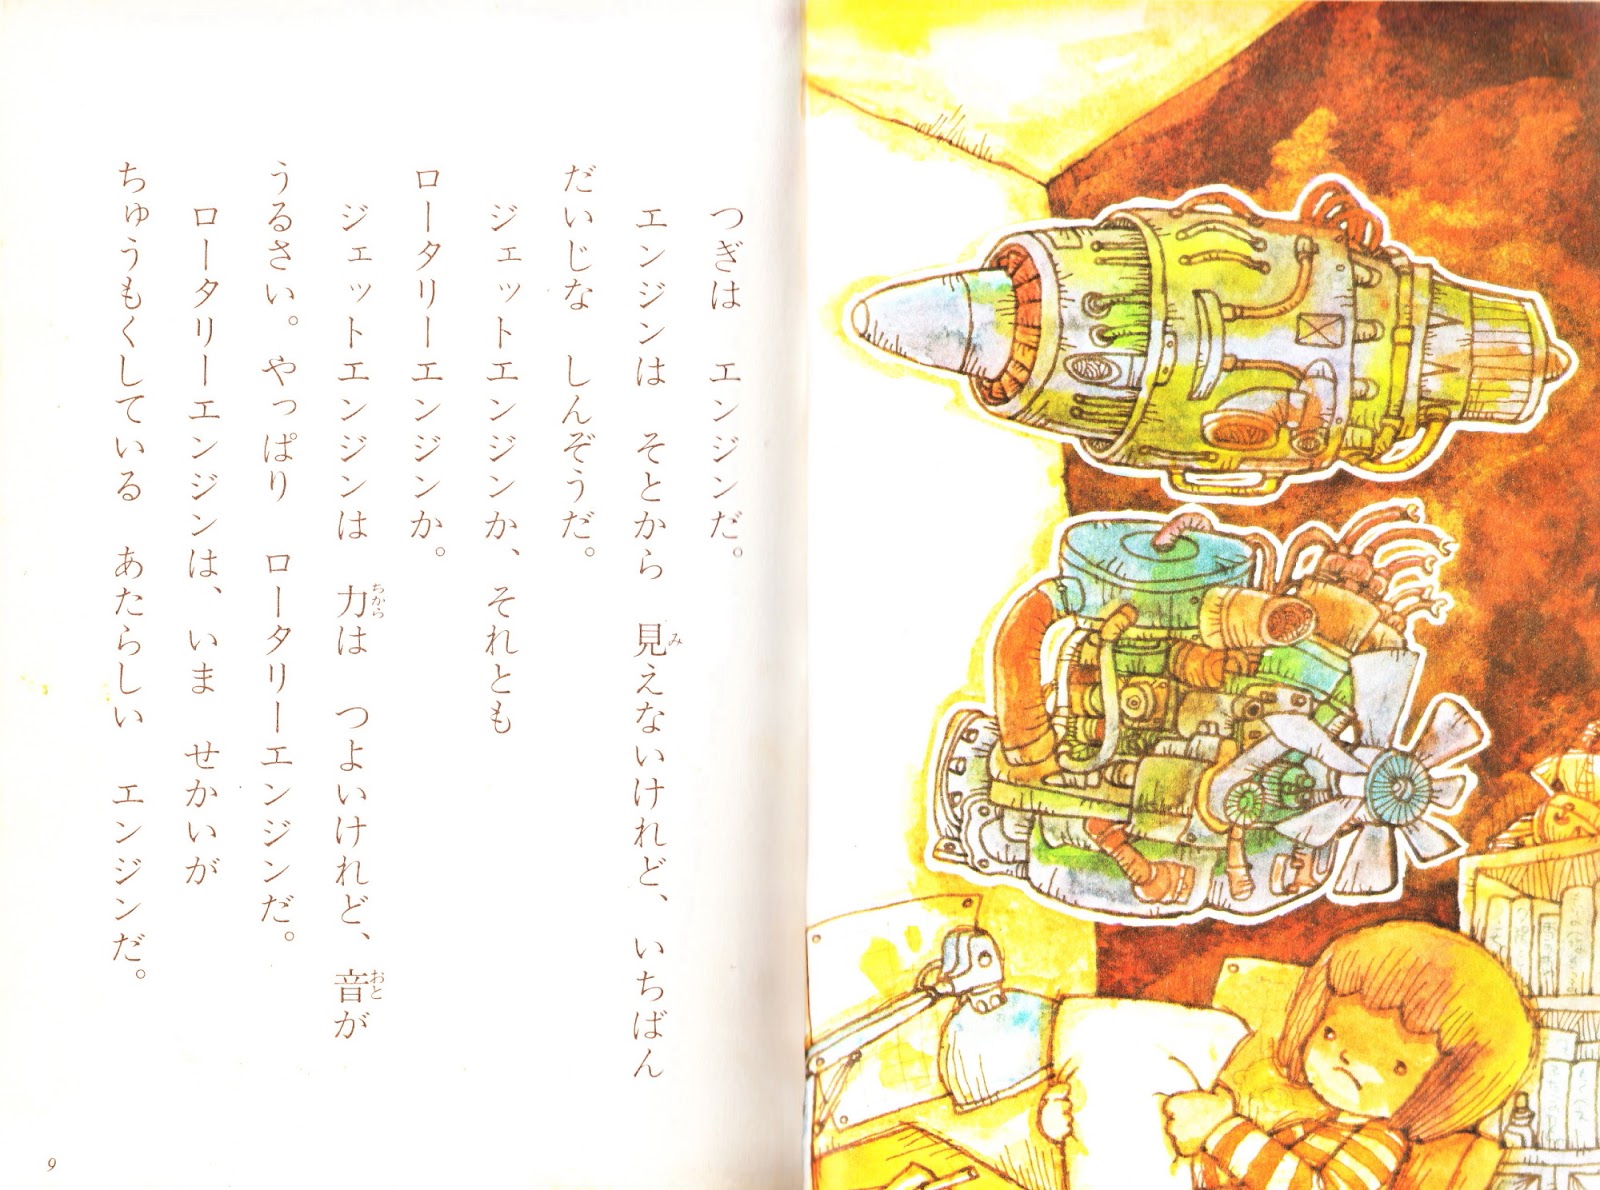 つぎは エンジンだ。
エンジンは そとから 見えないけれど、いちばん
だいじな しんぞうだ。
ジェットエンジンか、それとも
ロータリーエンジンか。
ジェットエンジンは 力は つよいけれど、音が
うるさい。やっぱり ロータリーエンジンだ。
ロータリーエンジンは、いま せかいが
ちゅうもくしている あたらしい エンジンだ。
み
ちから
おと
9